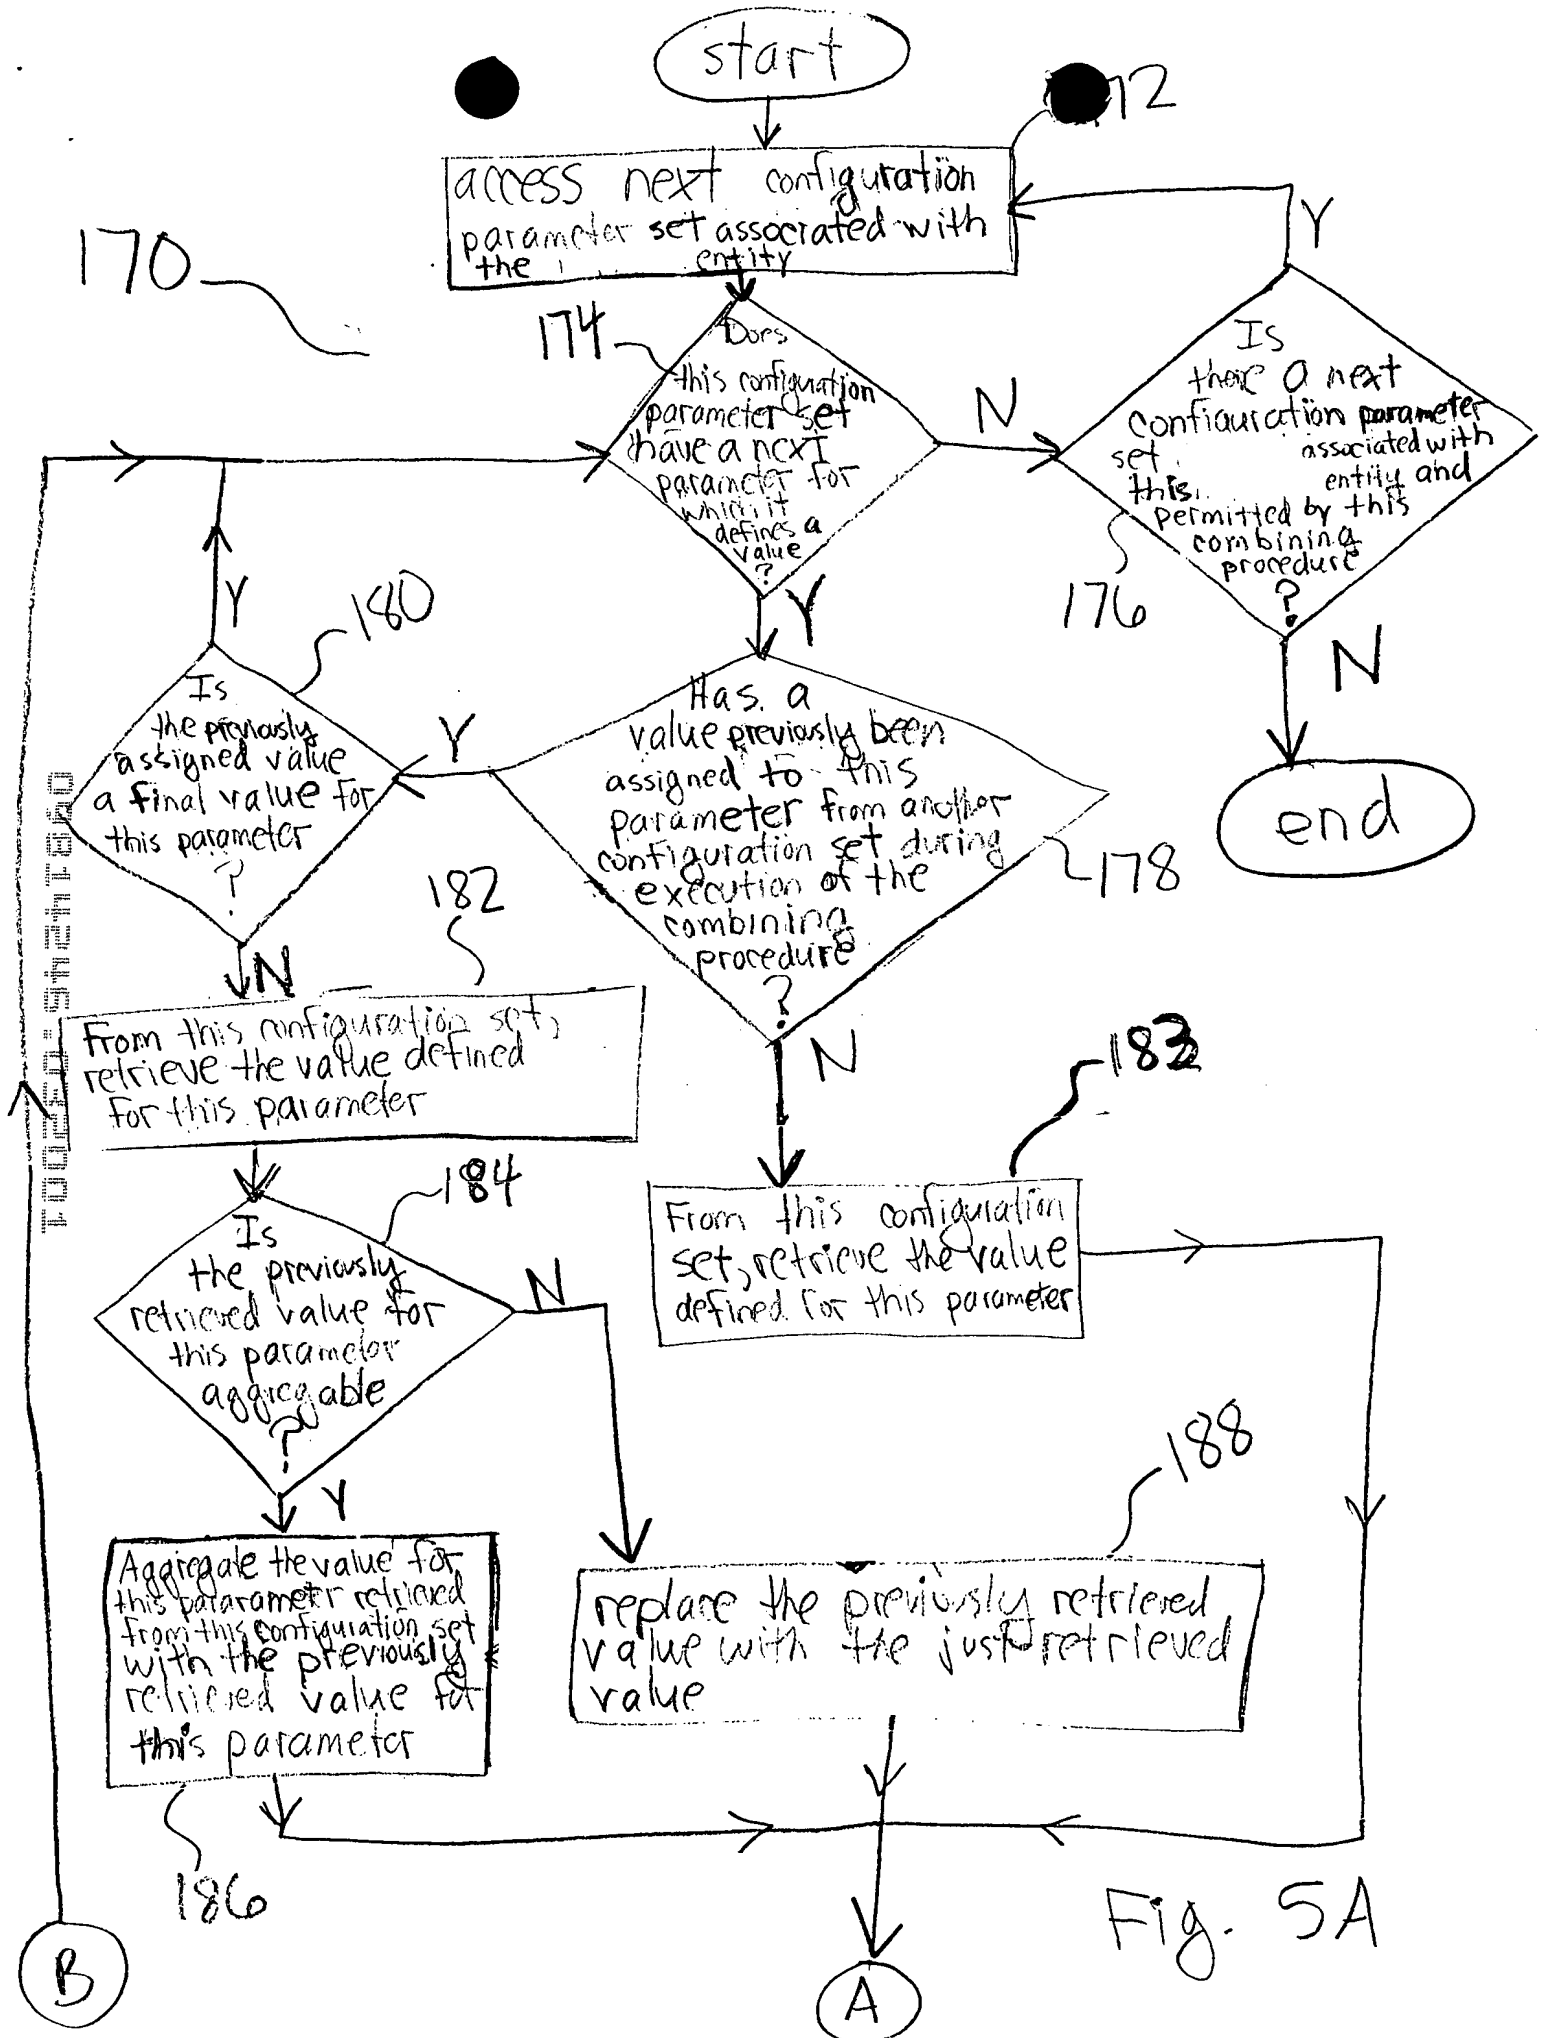 start
72
access next configuration
parameter set associated with
the entity
170
174
Does
this configuration
parameter set
have a next
parameter for
which it
defines a
value
?
N
Y
Is
there a next
configuration parameter
set associated with
this entity and
permitted by this
combining
procedure
?
Y
176
N
end
Y
180
Is
the previously
assigned value
a final value for
this parameter
?
Y
Has a
value previously been
assigned to this
parameter from another
configuration set during
execution of the
combining
procedure
?
178
182
N
N
From this configuration set,
retrieve the value defined
for this parameter
183
184
Is
the previously
retrieved value for
this parameter
aggregable
?
N
Y
From this configuration
set, retrieve the value
defined for this parameter
188
Aggregate the value for
this pararametr retrieved
from this configuration set
with the previously
retrieved value for
this parameter
replace the previously retrieved
value with the just retrieved
value
186
Fig. 5A
B
A
09814245.032001